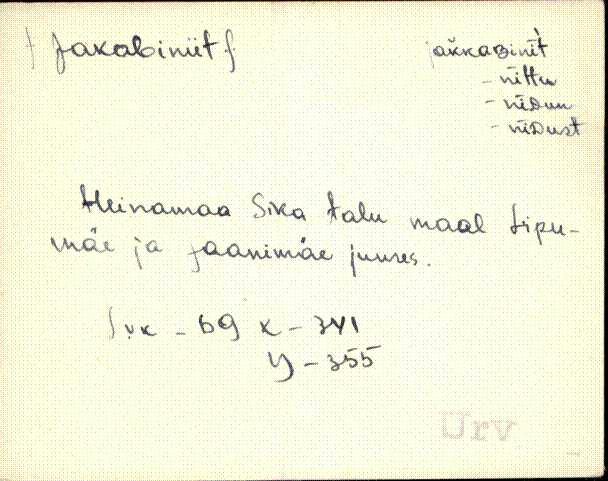 Jakabiniit
jaккaʙinìt̀
- nittu
- niᴅuu
- niᴅust
Heinamaa Sika talu maal Lipu-
mäe ja Jaanimäe juures.
Lvk - 69 X - 341
Y - 355
Urv